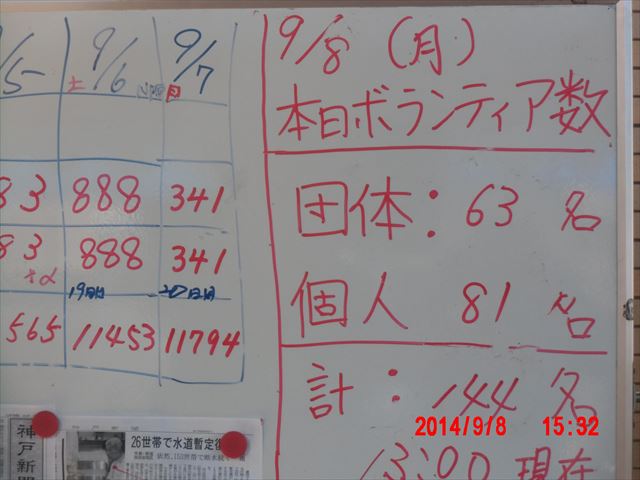 9/6 9/7
土 日
888 341
888 341
+α
19日目 20日目
565 11453 11794
9/8 (月)
本日ボランティア数
団体: 63 名
個人 81 名
計: 144 名
13:00 現在
神戸新聞
26世帯で水道暫定復
2014/9/8 15:32